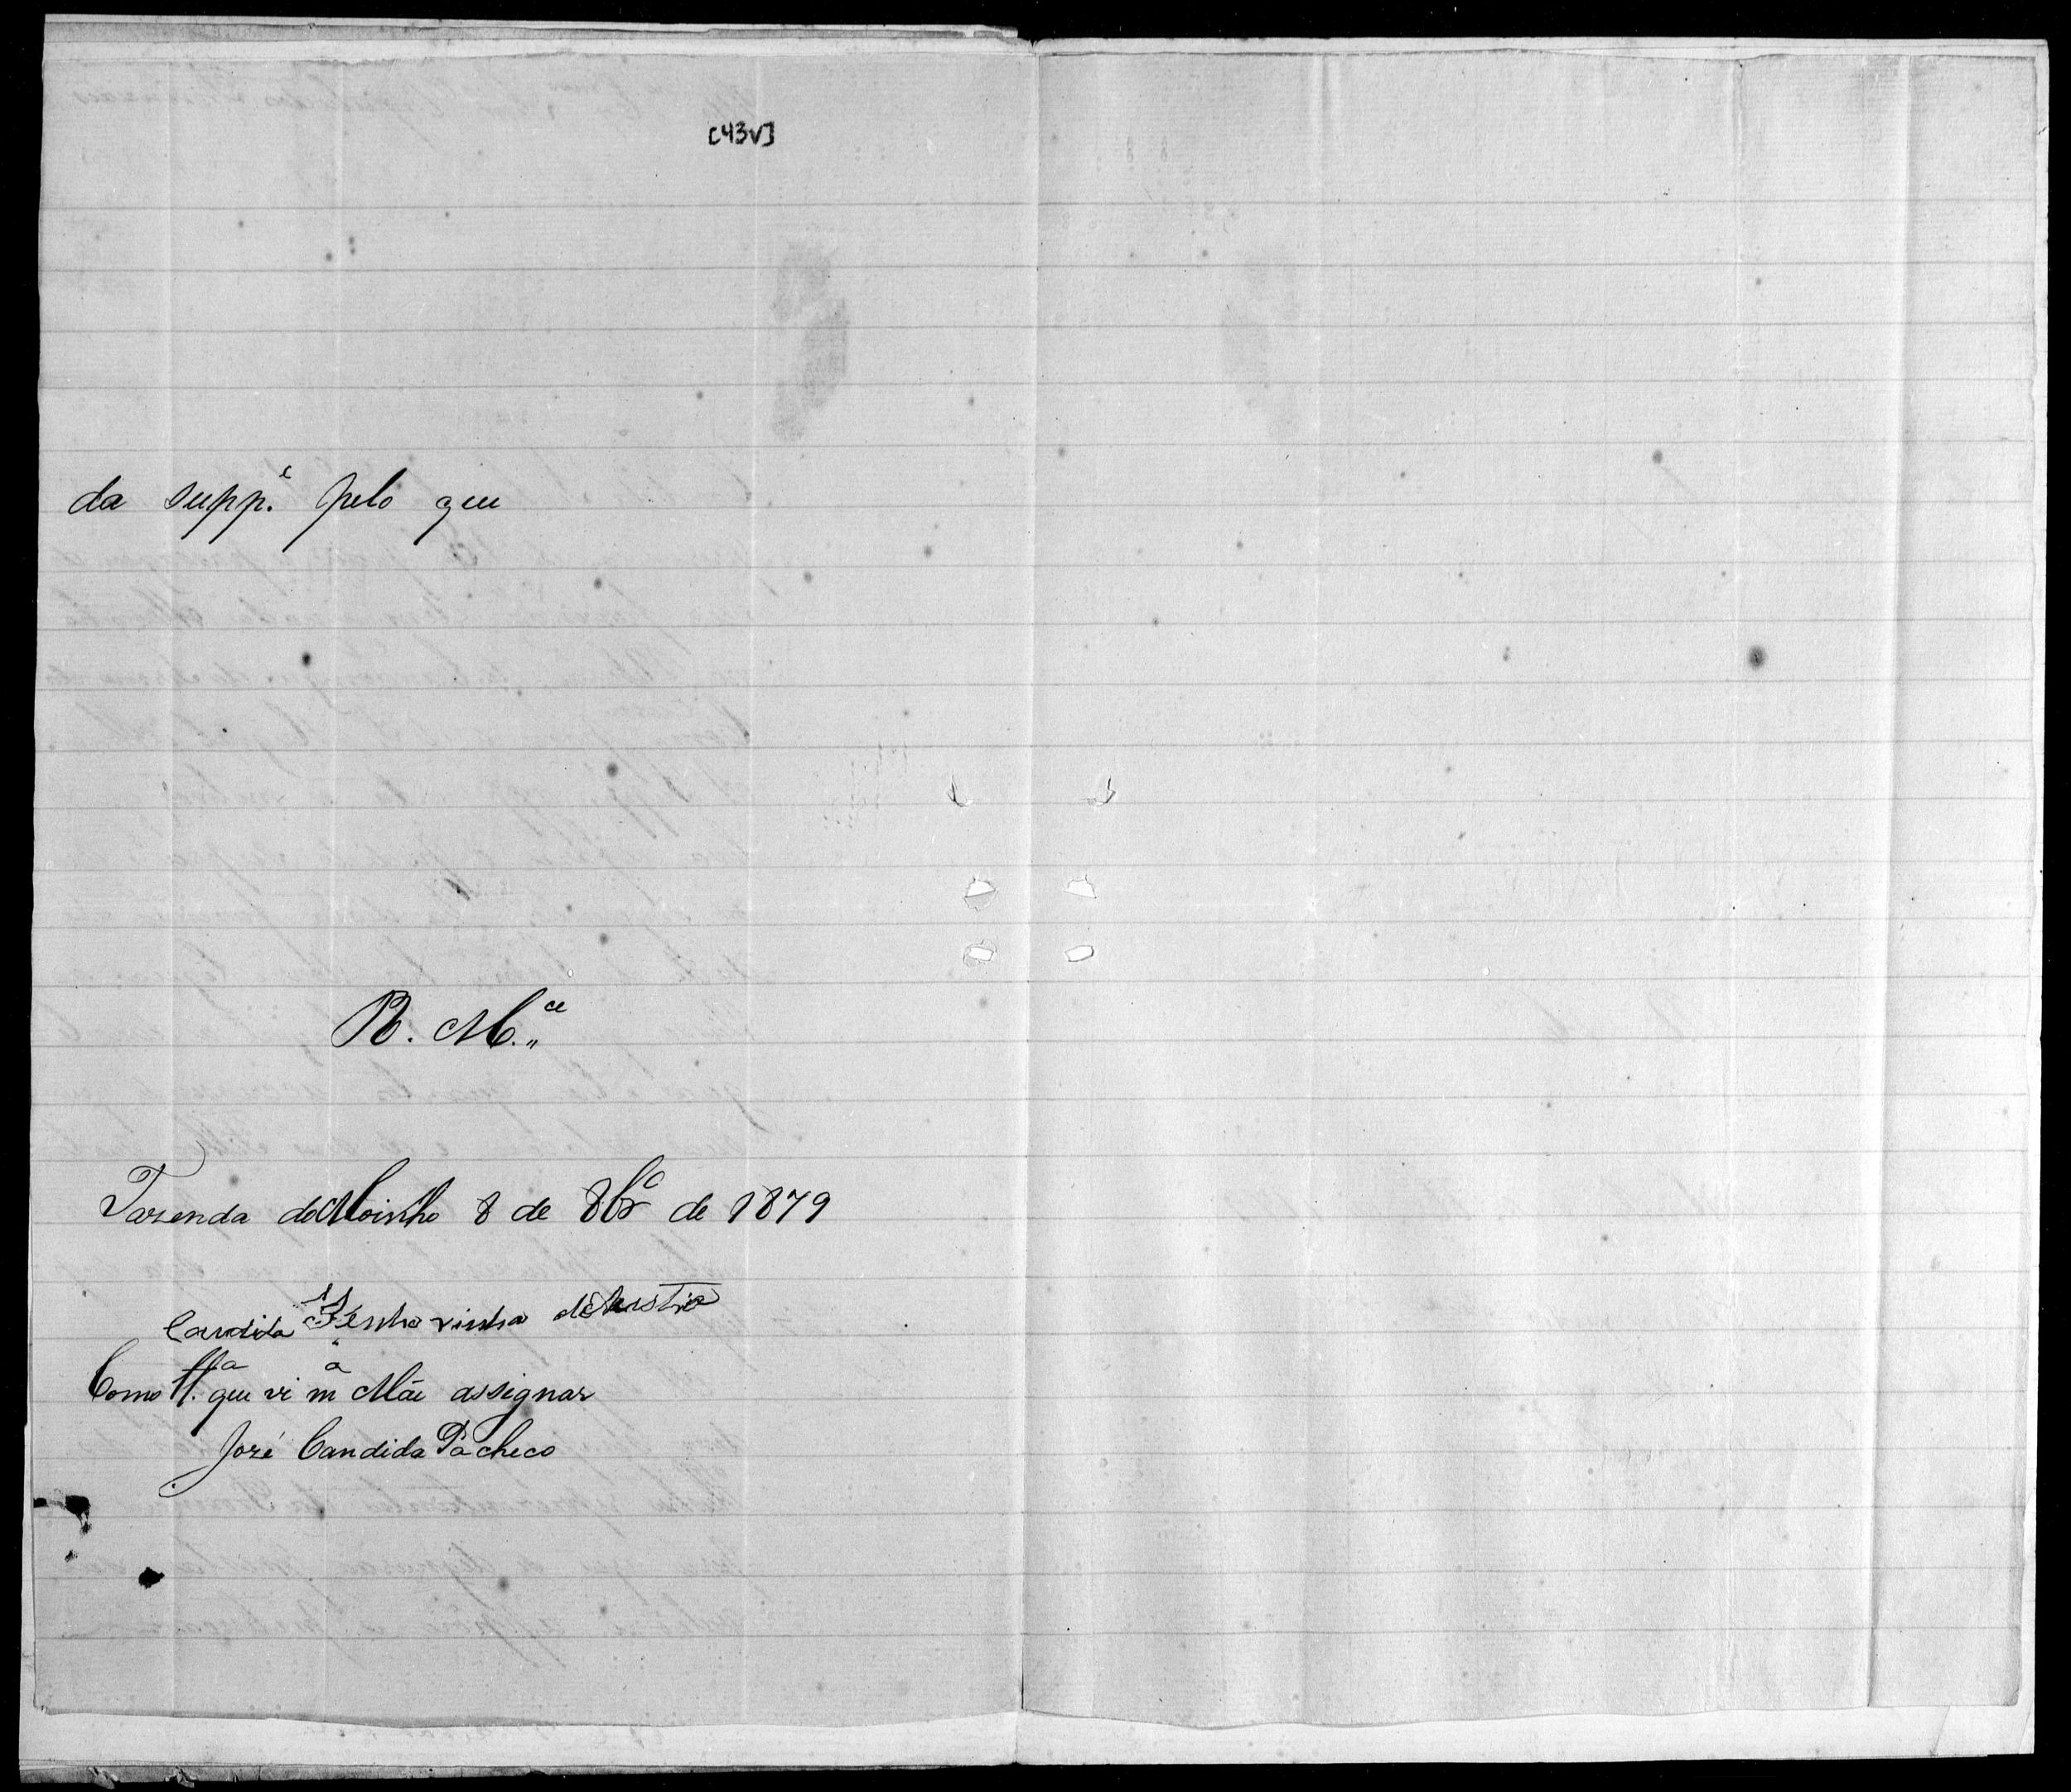 [43v]
da supp.e pelo que
R. M.ce
Fazenda do Moinho 8 de 8br.o de 1879
Candida
Como tt.a que vi m.a Mãe assignar
José Candida Pacheco